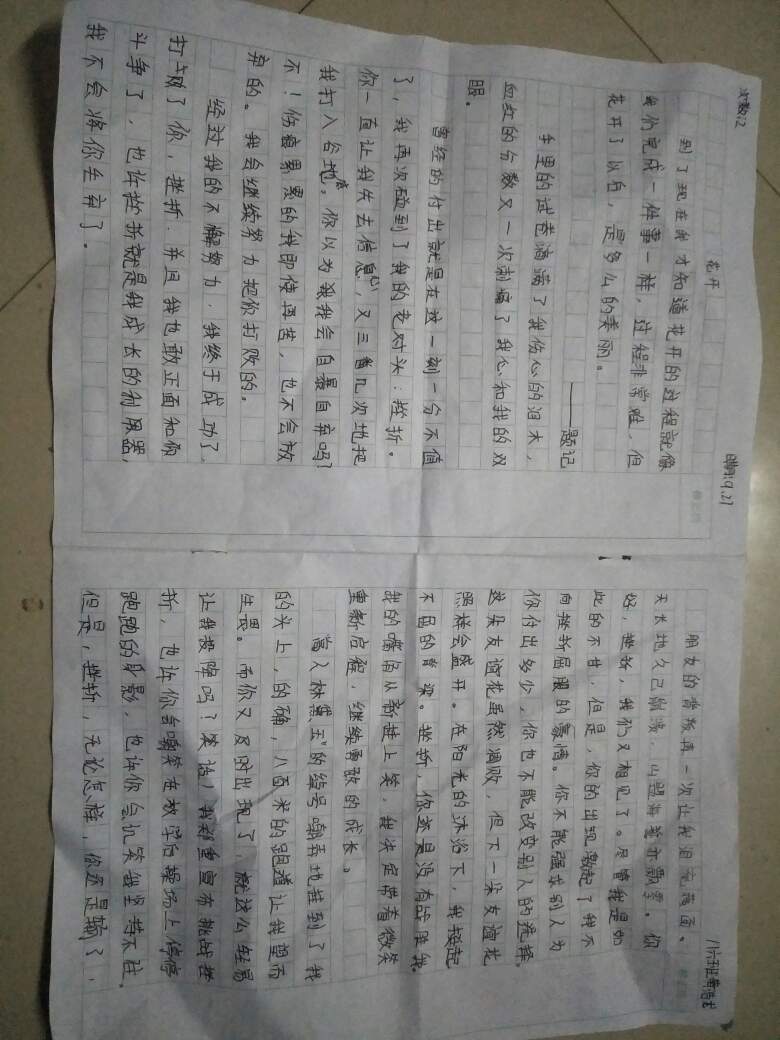 次数:12
日期:9.27
花开
到了现在我才知道花开的过程就像
我们完成一件事一样，过程非常难，但
花开了以后，是多么的美丽。
——题记
手里的试卷滴满了我伤心的泪水，
血红的分数又一次刺痛了我心和我的双
眼。
曾经的付出就是在这一刻一分不值
了，我再次碰到了我的老对头：挫折。
你一直让我失去信心，又三番几次地把
我打入谷底。你以为我会自暴自弃吗？
不！伤痕累累的我即使再苦，也不会放
弃的。我会继续努力把你打败的。
经过我的不懈努力，我终于成功了。
打败了你，挫折，并且我也敢正面和你
斗争了，也许挫折就是我成长的利用器，
我不会将你全弃了。
八六班
朋友的背叛再一次让我泪流满面。
天长地久已崩溃，山盟海誓亦飘零。你
好，挫折，我们又相见了。尽管我是如
此的不甘，但是，你的出现激起了我不
向挫折屈服的豪情。你不能强求别人为
你付出多少，你也不能改变别人的选择。
这朵友谊花虽然凋败，但下一朵友谊花
照样会盛开。在阳光的沐浴下，我挺起
不屈的脊梁。挫折，你还是没有战胜我。
我的嘴角从新挂上笑，我决定带着微笑
重新启程，继续勇敢的成长。
的头上，的确，八百米的跑道让我望而
生畏。而你又及时出现了，就这么轻易
让我投降吗？笑话！我郑重宣布挑战挫
折，也许你会嘲笑在放学后操场上停停
跑跑的身影，也许你会讥笑我坚持不住。
但是，挫折，无论怎样，你还是输了，